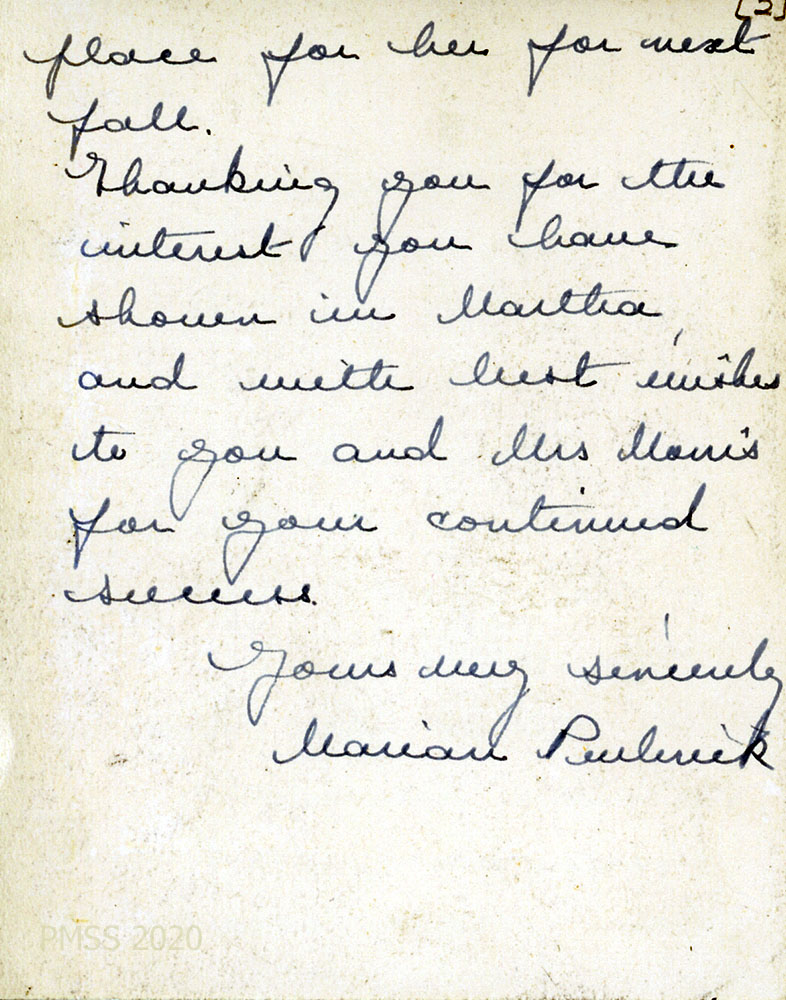 [2]
place for her for next
fall.
Thanking you for the
interest you have
shown in Martha,
and with best wishes
to you and Mrs Morris
for your continued
success.
Yours very sincerely
Marian
PMSS 2020